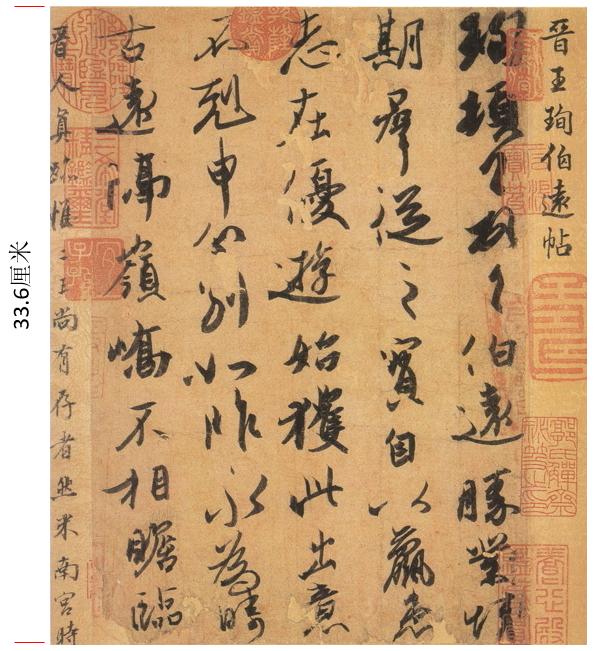 晋王珣伯远帖
珣頓首頓首伯遠勝業情
期羣從之寶自以羸患
志在優遊始獲此出意
不剋申分別如昨永為疇
古遠隔嶺嶠不相瞻臨
晋人真跡惟二王尚有存者然米南宮時
33.6厘米